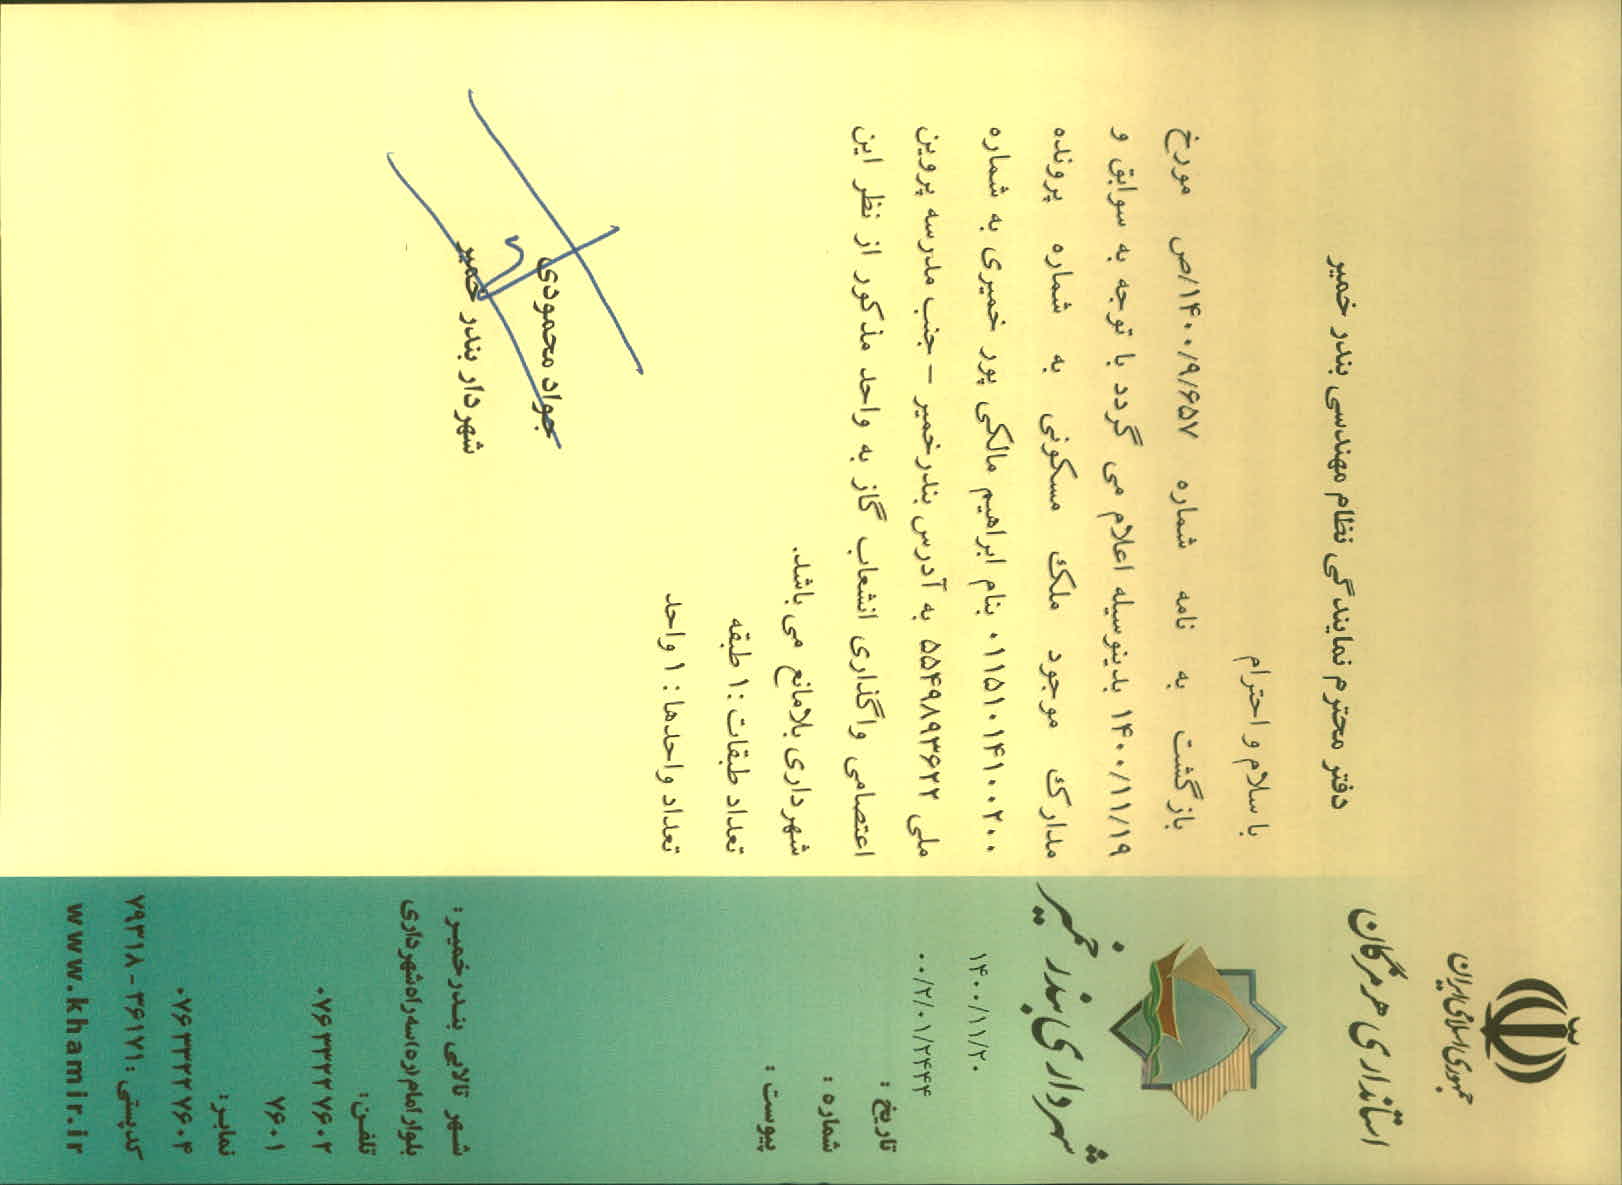 جمهوری اسلامی ایران
استانداری هرمزگان
شهرداری بندر خمیر
۱۴۰۰/۱۱/۲۰
۰۰/۲/۰۱/۲۴۴۴
تاریخ :
شماره :
پیوست :
دفتر محترم نمایندگی نظام مهندسی بندر خمیر
با سلام و احترام
بازگشت به نامه شماره ۱۴۰۰/۹/۶۵۷/ص مورخ
۱۴۰۰/۱۱/۱۹ بدینوسیله اعلام می گردد با توجه به سوابق و
مدارک موجود ملک مسکونی به شماره پرونده
۰۱۱۵۱۰۱۴۱۰۰۲۰۰ بنام ابراهیم مالکی پور خمیری به شماره
ملی ۵۵۴۹۸۹۳۶۲۲ به آدرس بندرخمیر – جنب مدرسه پروین
اعتصامی واگذاری انشعاب گاز به واحد مذکور از نظر این
شهرداری بلامانع می باشد.
تعداد طبقات : ۱ طبقه
تعداد واحدها : ۱ واحد
جواد محمودی
شهردار بندر خمیر
شهر تالابی بندرخمیر :
بلوار امام (ره) سه راه شهرداری
تلفن :
۰۷۶۳۳۲۲۷۶۰۲
۷۶۰۱
نمابر :
۰۷۶۳۳۲۲۷۶۰۴
کدپستی : ۳۶۱۷۱ - ۷۹۳۱۸
www.khamir.ir